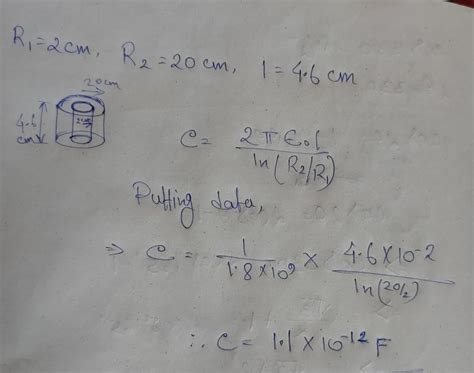 R₁=2cm, R₂=20cm, l=4.6cm
20cm
4.6 cm
2cm
C= 2πε₀l / ln(R₂/R₁)
Putting data,
⇒ C = 1 / 1.8×10⁹ × 4.6×10⁻² / ln(20/2)
∴ C = 1.1×10⁻¹² F